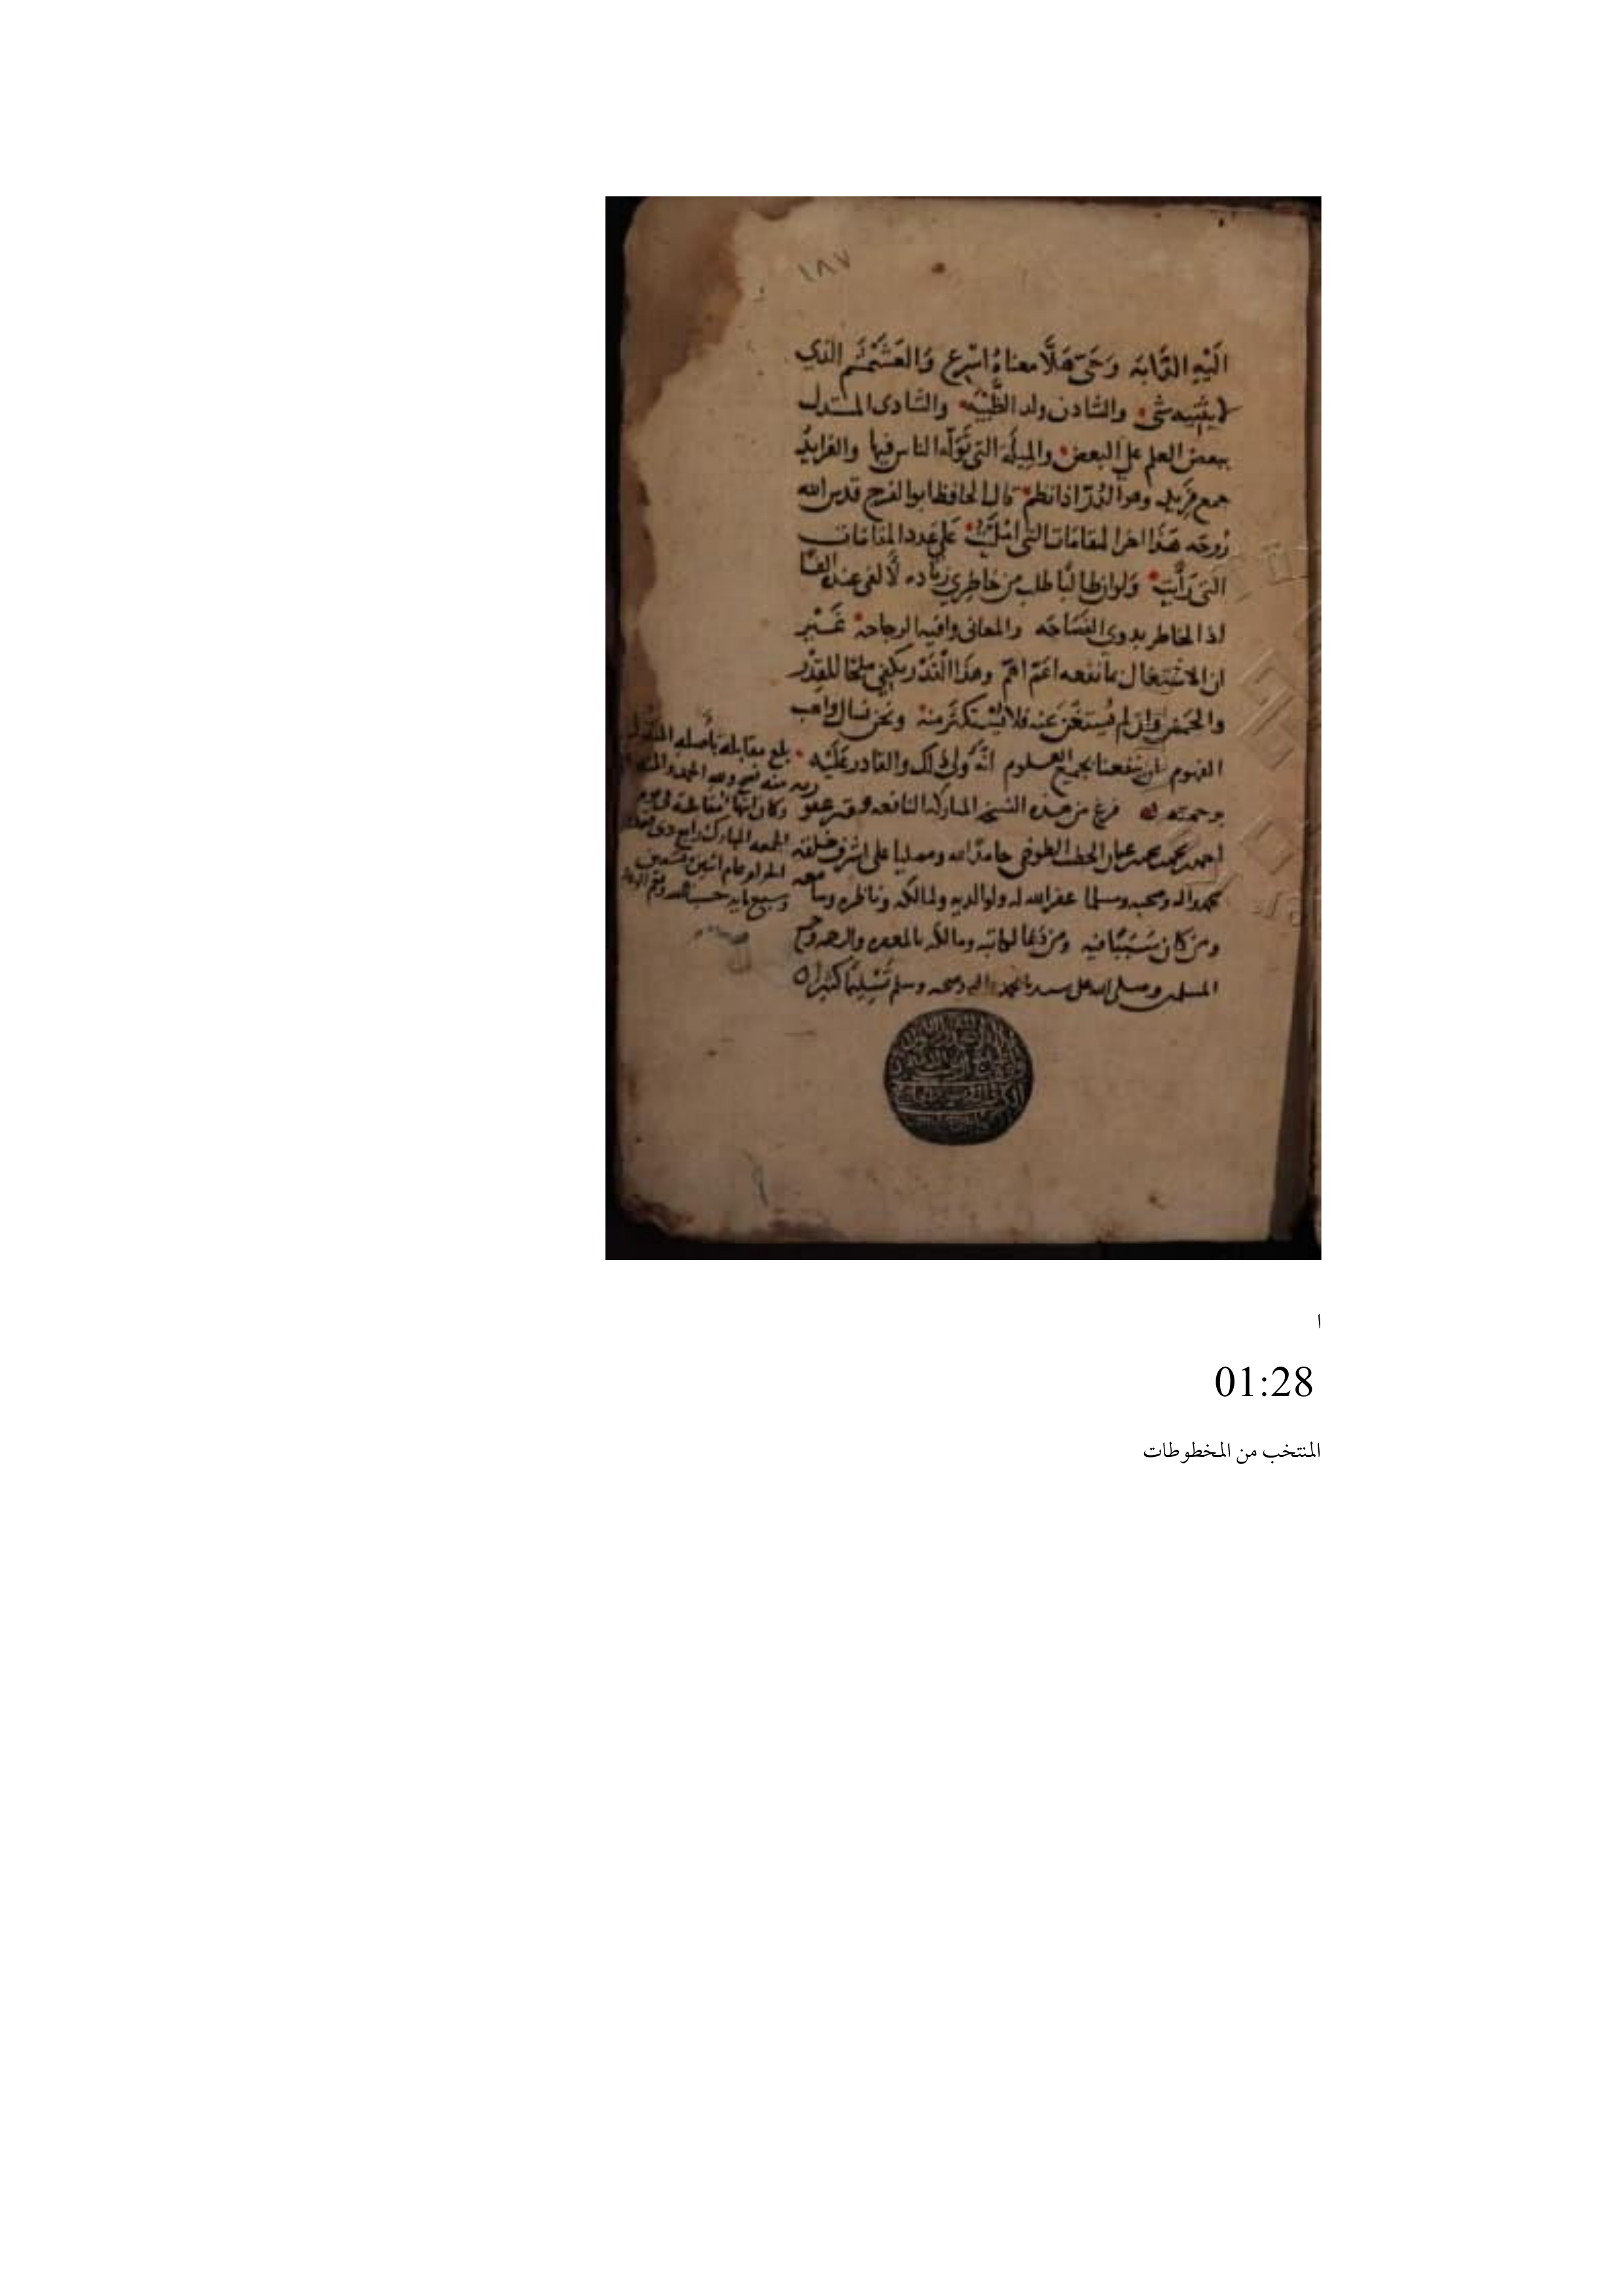 ١٨٧
اليه الدابة وحي هلا معناه اسرع والغشمشم الذي
لا يثنيه شي والشادن ولد الظبية والشادي المستدل
ببعض العلم على البعض والميله التي توله الناس فيها والفرايد
جمع فريد وهو الدر اذا نظم قال الحافظ ابو الفرج قدس الله
روحه هذا اخر المقامات التي امللت على عدد المقامات
التي رايت ولو ان طالبا طلب من خاطري زياده لالفى عنده الفا
اذ الخاطر بدوي الفصاحه والمعاني وافيه الرجاحه غير
ان الاشتغال بما نفعه اعم اهم وهذا القدر يكفي ملحا للقدر
والحمض وان لم يستغن عنه فلا يستكثر منه ونحن نسال واهب
الفهوم ان ينفعنا بجميع العلوم انه ولي ذلك والقادر عليه
برحمته فرغ من هذه النسخة المباركة النافعة فقير عفو
احمد محمد محمد الخطيب الطوخي حامدا لله ومصليا على اشرف خلقه
محمد واله وصحبه ومسلما غفر الله له ولوالديه ولمالكه وناظره وسامعه
ومن كان سببا فيه ومن دعا لكاتبه ومالكه بالمغفره والرحمه وجميع
المسلمين وصلى الله على سيدنا محمد واله وصحبه وسلم تسليما كثيرا
بلغ مقابله باصله المنقول
منه فصح ولله الحمد والمنه
وكان انتها مقابلته في يوم
الجمعه المبارك رابع ذي
الحرام عام اثنين
وسبع مايه حسبنا الله ونعم الوكيل
ا
01:28
المنتخب من المخطوطات